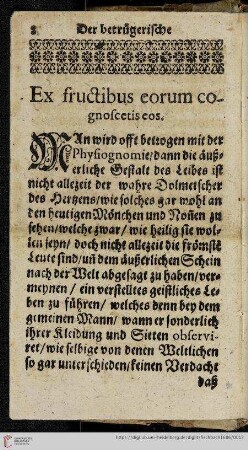 8 Der betrügerische
Ex fructibus eorum co-
gnoscetis eos.
MAn wird offt betrogen mit der
Physiognomie / dann die äuß-
erliche Gestalt des Leibes ist
nicht allezeit der wahre Dolmetscher
des Hertzens / wie solches gar wohl an
den heutigen Mönchen und Noñen zu
sehen / welche zwar / wie heilig sie wol-
len seyn / doch nicht allezeit die frömste
Leute sind / uñ dem äußerlichen Schein
nach der Welt abgesagt zu haben / ver-
meynen / ein verstelltes geistliches Le-
ben zu führen / welches denn bey dem
gemeinen Mann / wann er sonderlich
ihrer Kleidung und Sitten observi-
ret / wie selbige von denen Weltlichen
so gar unterschieden / keinen Verdacht
daß